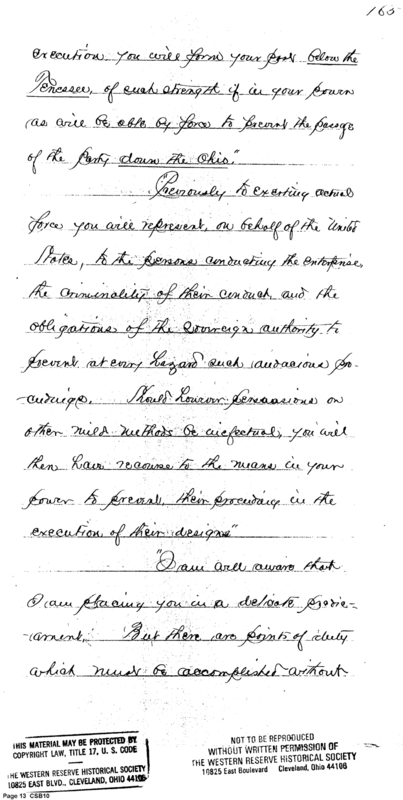 165
execution you will form your post below the
Tenessee, of such strength if in your power
as will be able by force to prevent the passage
of the Party down the Ohio."
Previously to exerting actual
force you will represent, on behalf of the United
States, to the persons conducting the enterprise,
the criminality of their conduct and the
obligations of the Sovereign authority to
prevent at every hazard such audacious pro-
-ceedings. Should however persuasions or
other mild methods be ineffectual, you will
then have recourse to the means in your
power to prevent their proceeding in the
execution of their designs"
"I am well aware that
I am placing you in a delicate predic-
-ament. But there are points of duty
which must be accomplished without
THIS MATERIAL MAY BE PROTECTED BY
COPYRIGHT LAW, TITLE 17, U. S. CODE
THE WESTERN RESERVE HISTORICAL SOCIETY
10825 EAST BLVD., CLEVELAND, OHIO 44106
NOT TO BE REPRODUCED
WITHOUT WRITTEN PERMISSION OF
THE WESTERN RESERVE HISTORICAL SOCIETY
10825 East Boulevard Cleveland, Ohio 44106
Page 13 CSB10